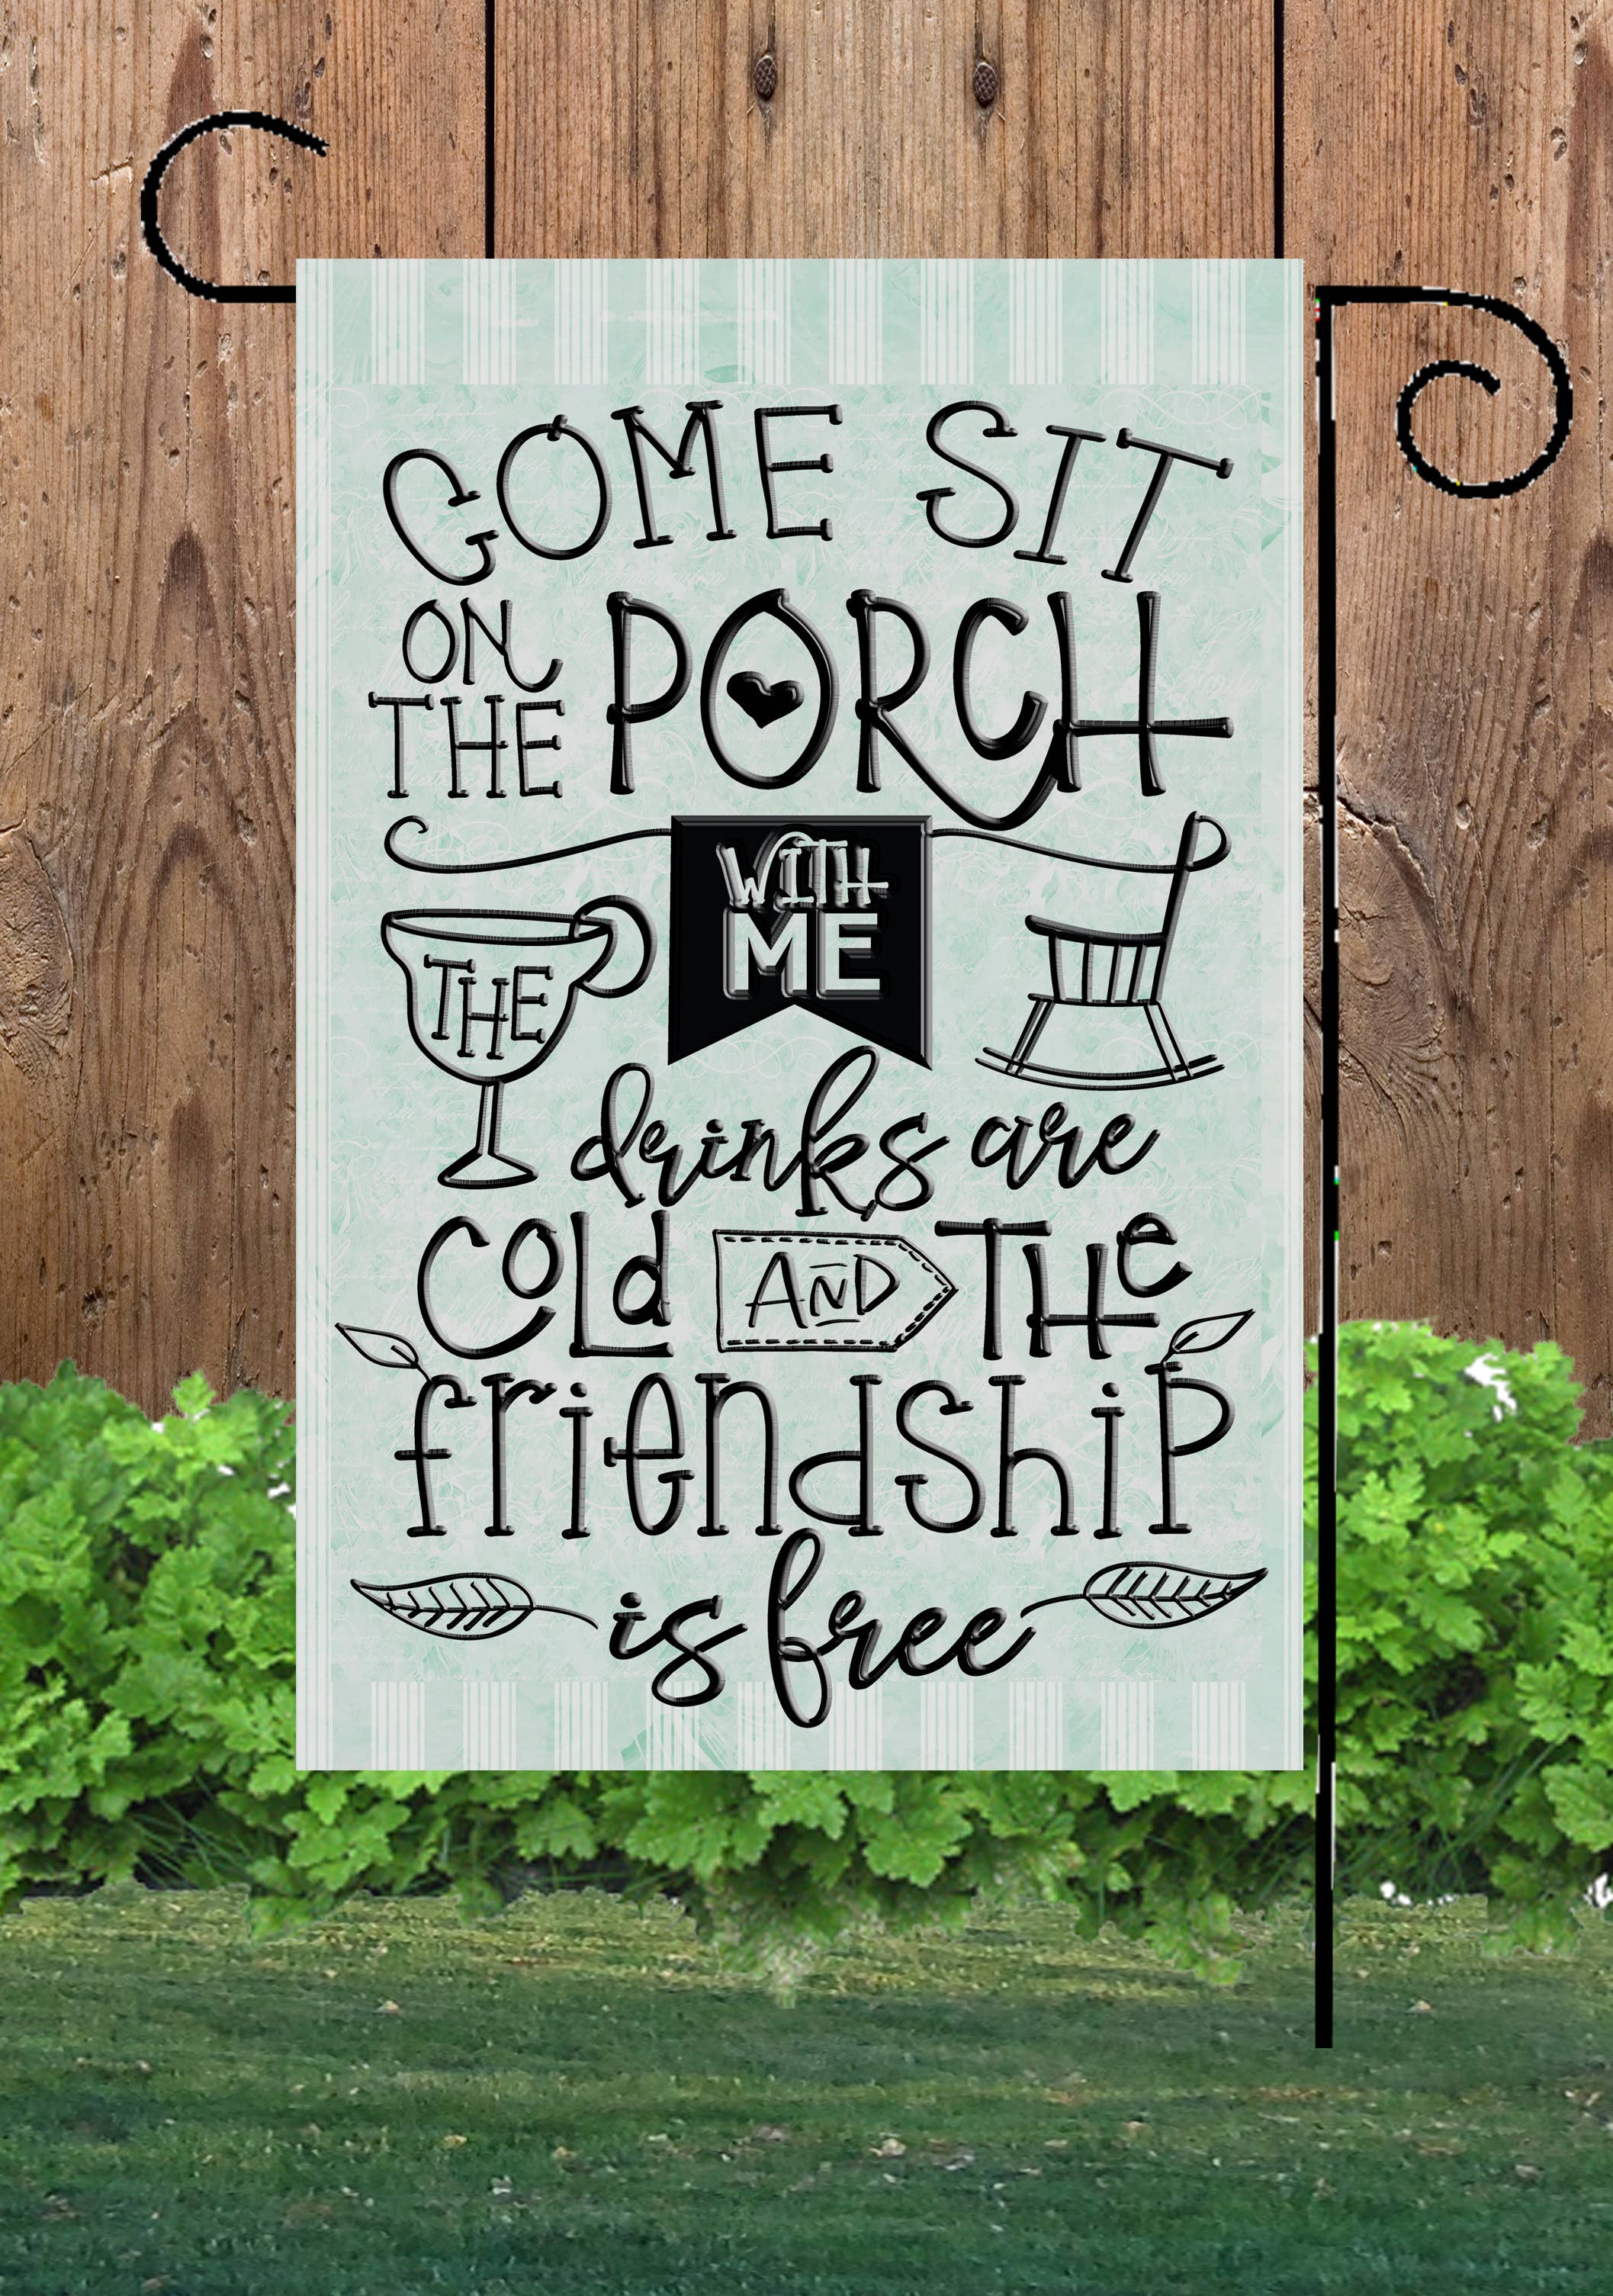 COME SIT
ON
THE PORCH
WITH
ME
THE
drinks are
COLd AND THe
friendship
is free